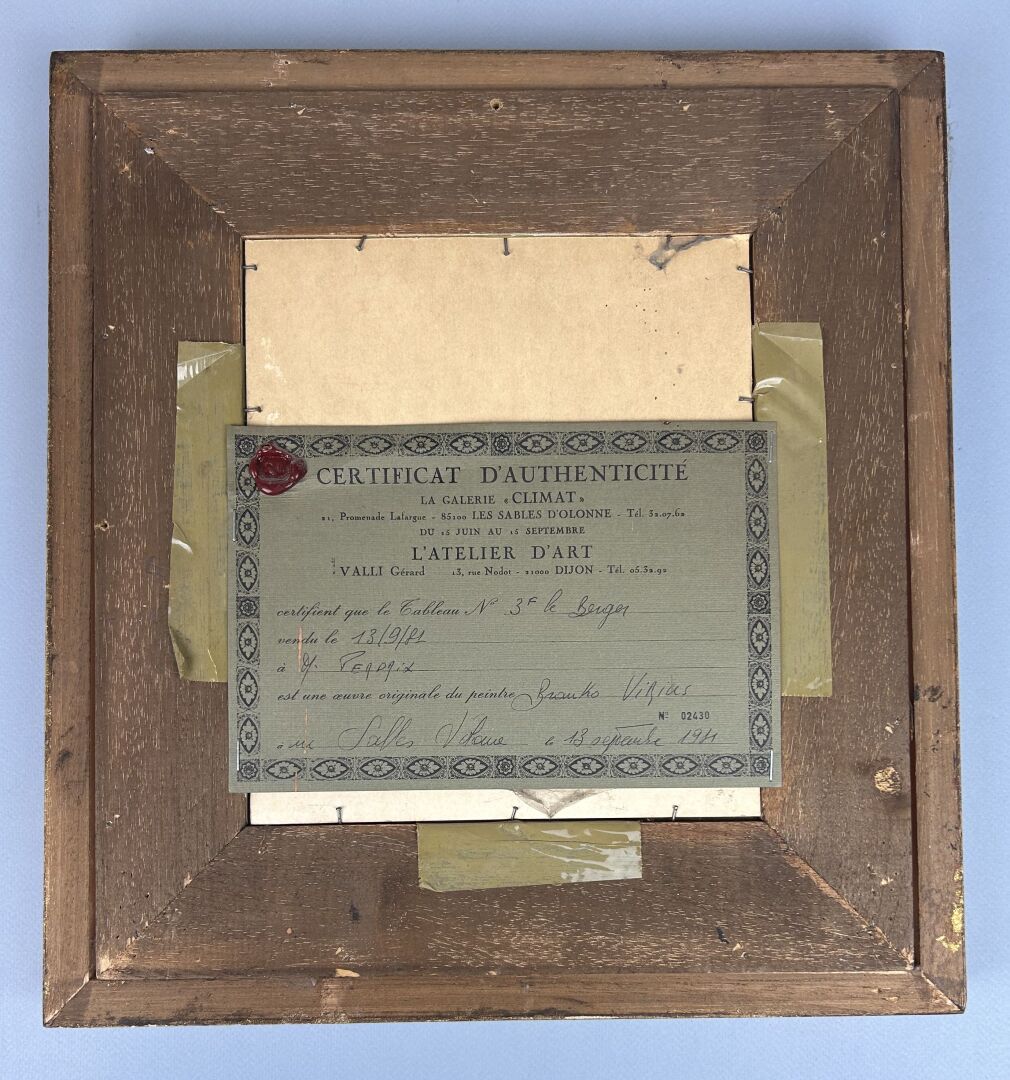 CERTIFICAT D'AUTHENTICITÉ
LA GALERIE «CLIMAT»
21, Promenade Lafargue - 85100 LES SABLES D'OLONNE - Tél. 32.07.62
DU 15 JUIN AU 15 SEPTEMBRE
L'ATELIER D'ART
VALLI Gérard 13, rue Nodot - 21000 DIJON - Tél. 05.32.92
certifient que le Tableau Nº 3F le Berger
vendu le 13/9/81
à M.
est une œuvre originale du peintre Branko
Nº 02430
à le 13 septembre 1981